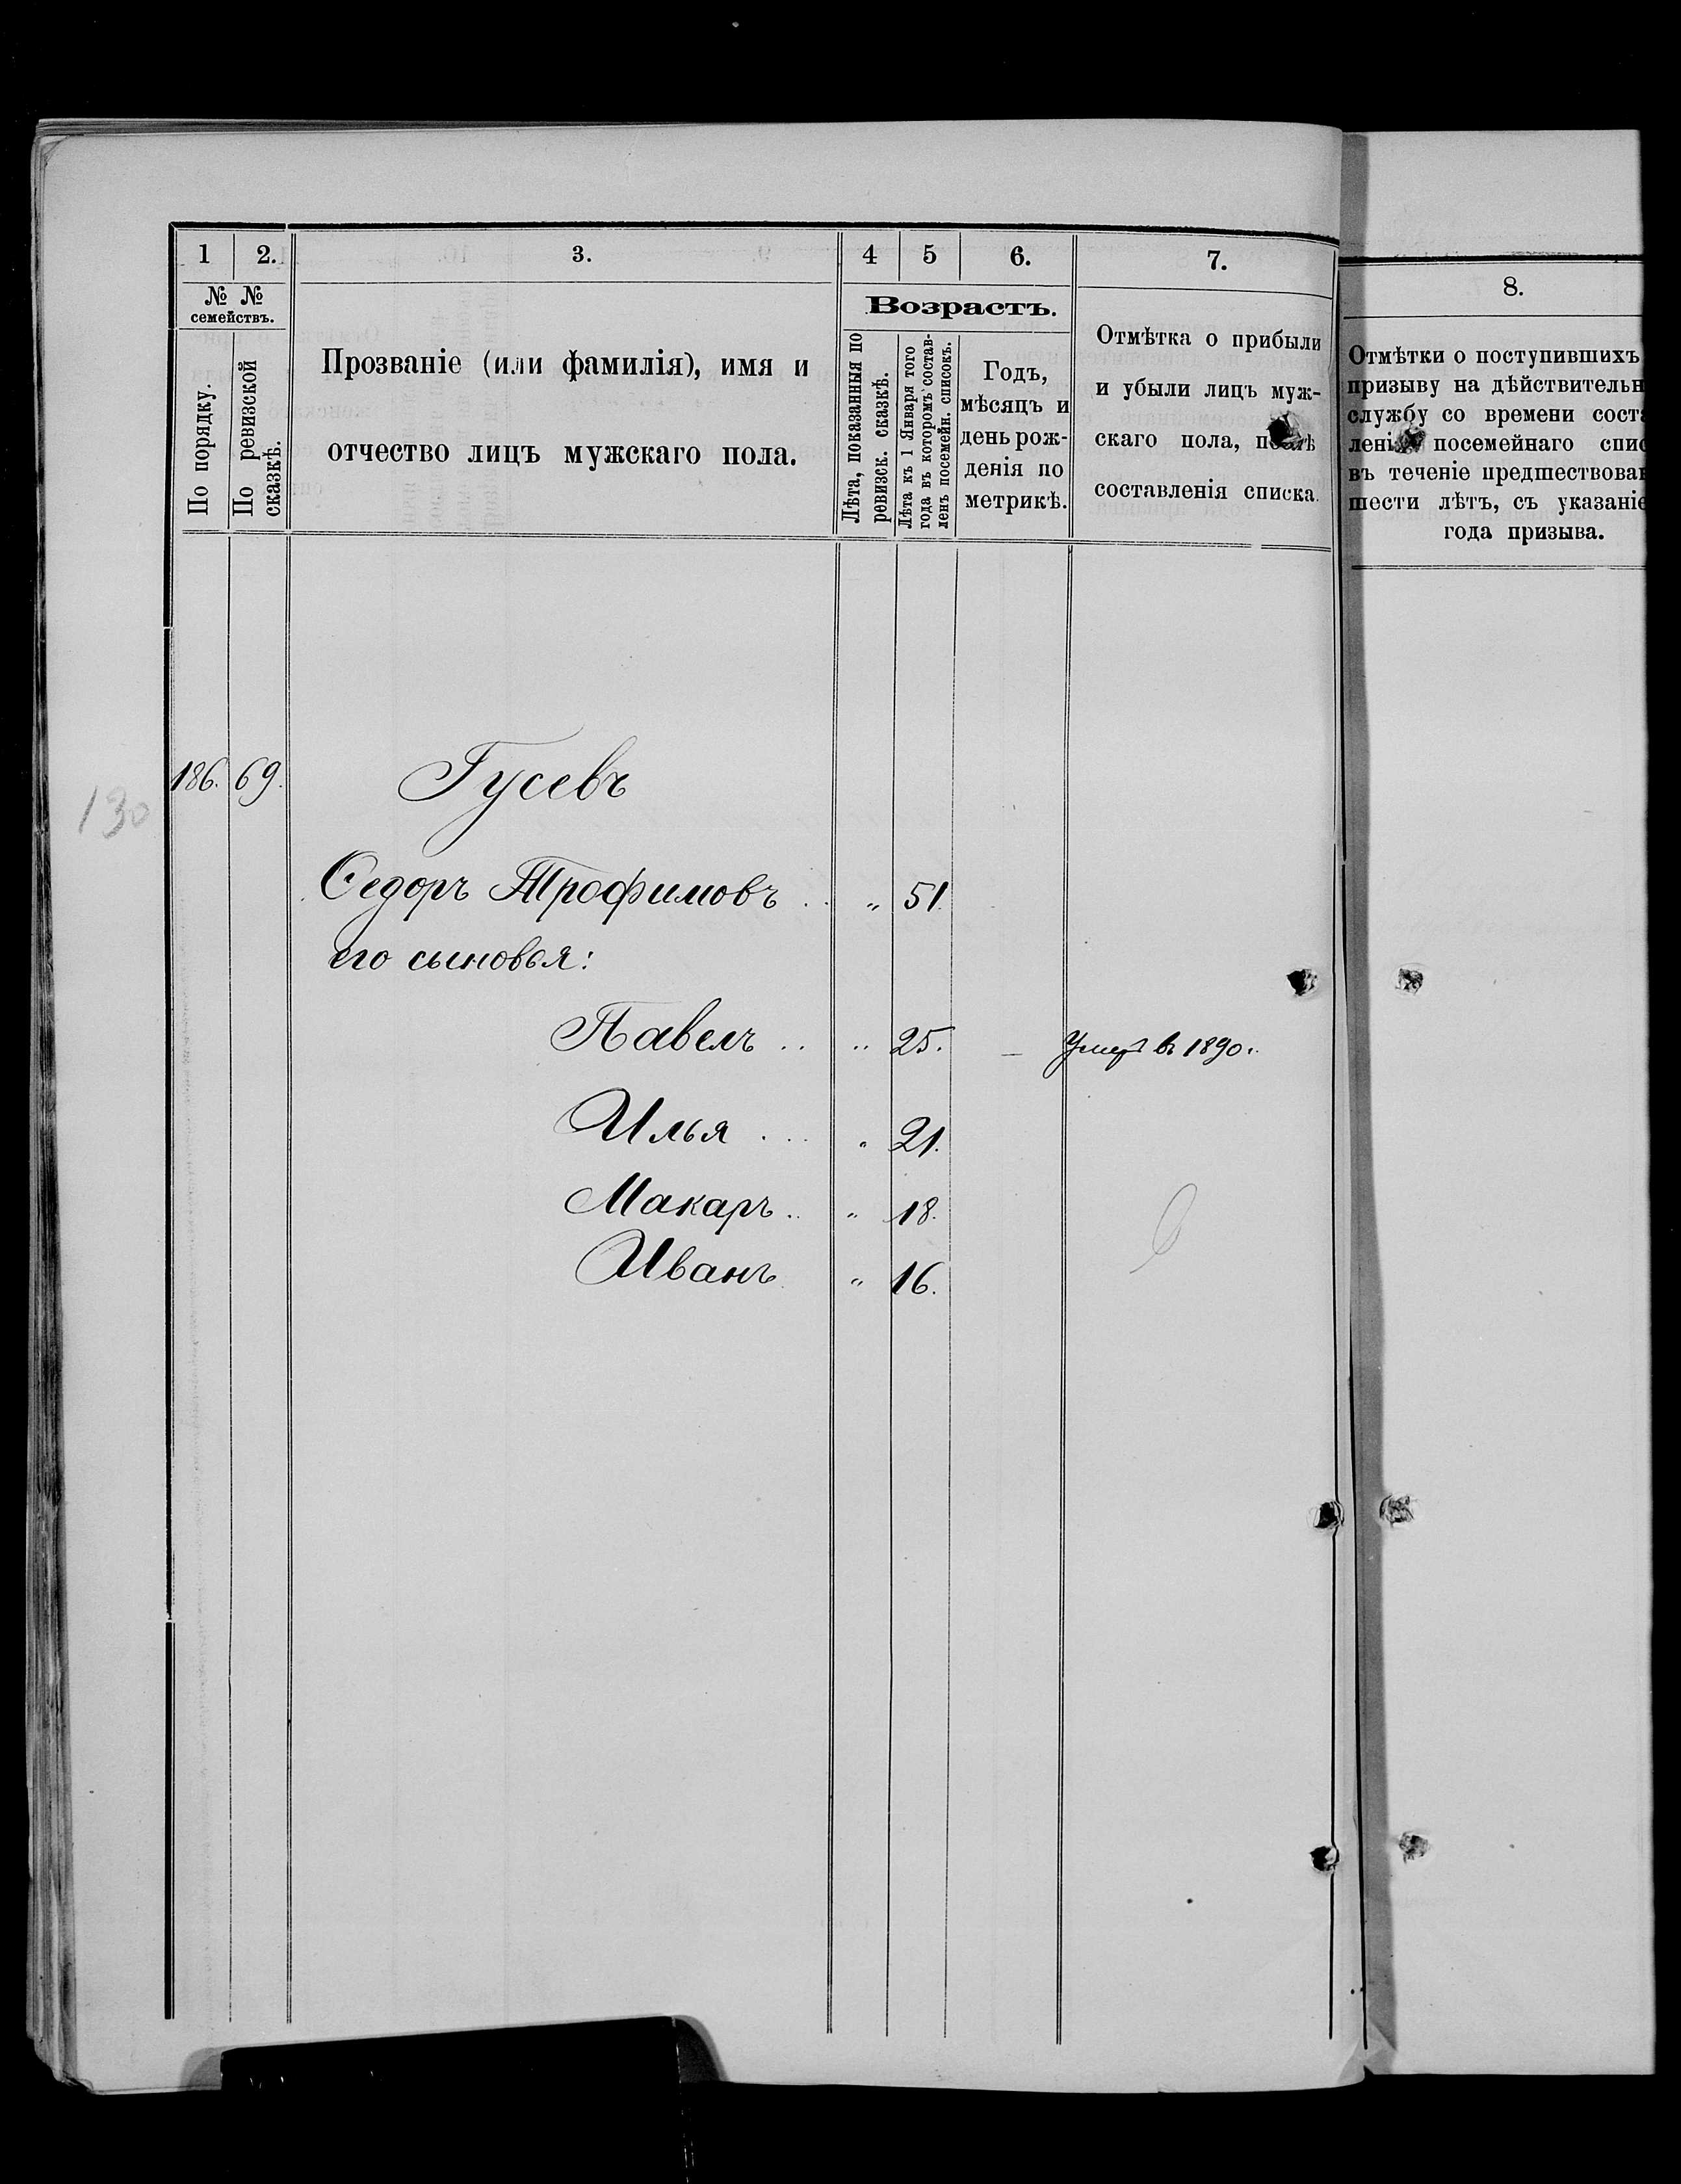 1 2. 3. 4 5 6. 7.
№ № семействъ.
По порядку.
По ревизской сказкѣ.
Прозваніе (или фамилія), имя и
отчество лицъ мужскаго пола.
Возрастъ.
Лѣта, показанныя по
ревизск. сказкѣ.
Лѣта къ 1 Января того
года въ которомъ состав-
ленъ посемейн. списокъ.
Годъ,
мѣсяцъ и
день рож-
денія по
метрикѣ.
Отмѣтка о прибыли
и убыли лицъ муж-
скаго пола, послѣ
составленія списка.
8.
Отмѣтки о поступившихъ
призыву на дѣйствительн
службу со времени соста
лені посемейнаго спис
въ теченіе предшествовав
шести лѣтъ, съ указаніе
года призыва.
130
186. 69. Гусевъ
Ѳедоръ Трофимовъ .. „ 51.
его сыновья:
Павелъ .. „ 25. — Умеръ въ 1890 г.
Илья ... „ 21.
Макаръ .. „ 18.
Иванъ „ 16.